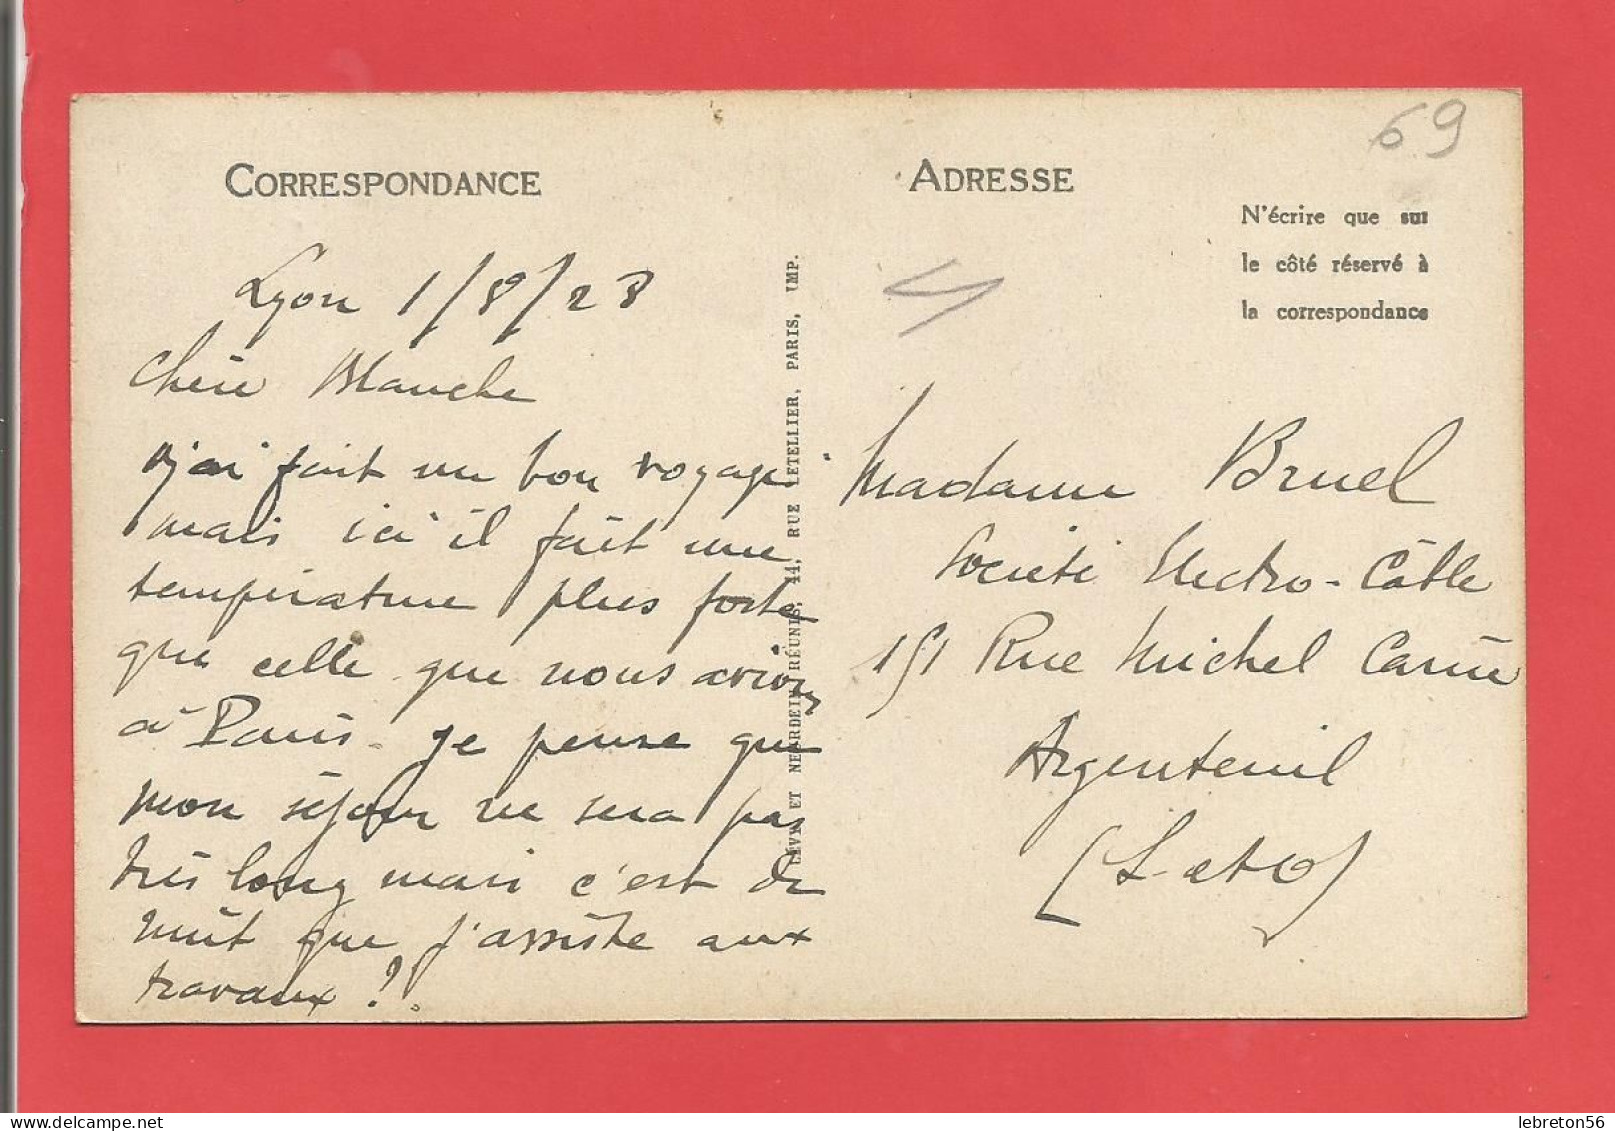 69
CORRESPONDANCE
ADRESSE
N'écrire que sur
le côté réservé à
la correspondance
Lyon 1/8/28
Chère Blanche
j'ai fait un bon voyage
mais ici il fait une
température plus forte
que celle que nous avions
à Paris. je pense que
mon séjour ne sera pas
très long mais c'est de
nuit que j'assiste aux
travaux ?.
LÉVY ET NEURDEIN RÉUNIS, 44, RUE LETELLIER, PARIS, IMP.
Madame Bruel
Société Electro-Câble
151 Rue Michel Carré
Argenteuil
(S. et O)
lebreton56